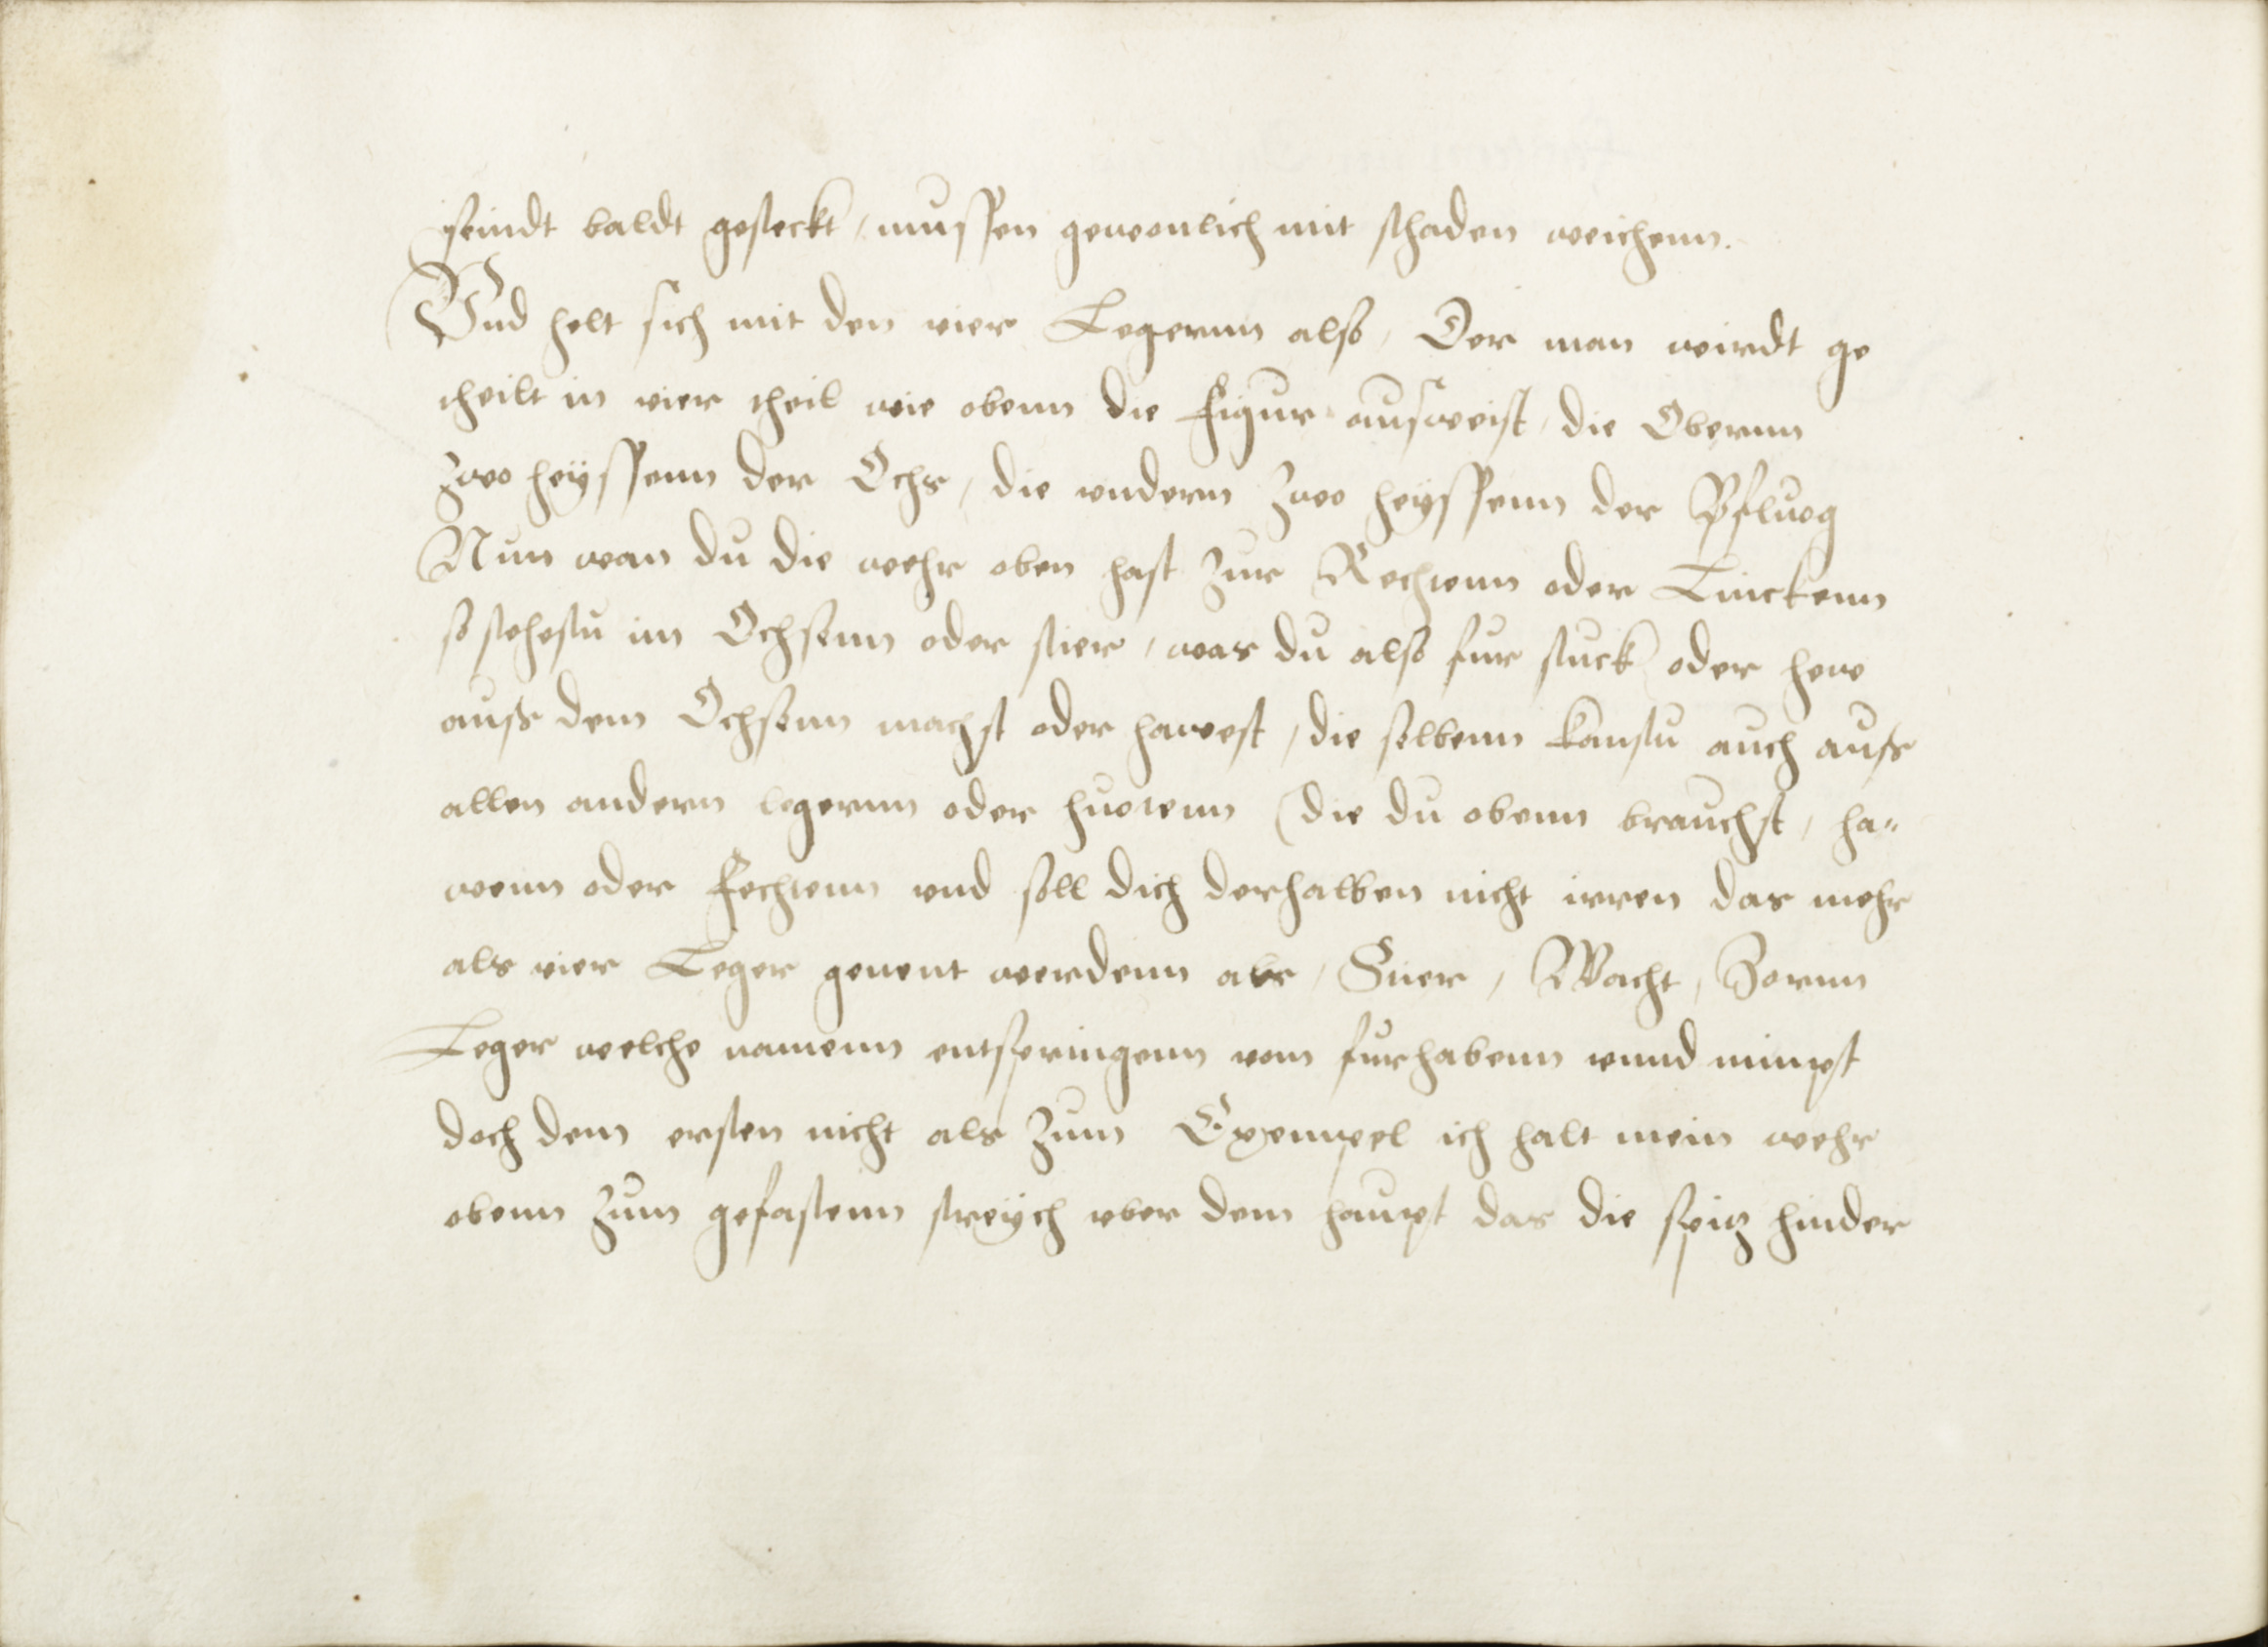 seindt baldt gesteckt, mussen gewonlich mit schaden weichenn.
Vnd helt sich mit den vier Legernn also, Der man wirdt ge
theilt in vier theil wie obenn die Figur ausweist, die Obernn
zwo heÿssenn der Ochs, die vndern zwo heyssenn der Pfluog
Nun wan du die wehr oben hast zur Rechtenn oder Linckenn
so stehestu im Ochsenn oder stier, was du also fur stuck oder hew
auß dem Ochsenn machst oder hawest, die selbenn kanstu auch auß
allen andern legernn oder huotenn die du obenn brauchst, ha„
wenn oder Fechtenn vnd soll dich derhalben nicht irren das mehr
als vier Leger genent werdenn als, Hüer, Wacht, Zornn
Leger welche namenn entspringenn vom furhabenn vnnd nimpst
doch dem ersten nicht als zum Exempel ich halt mein wehr
obenn zum gefastenn streÿch vber dem haupt das die spitz hinder